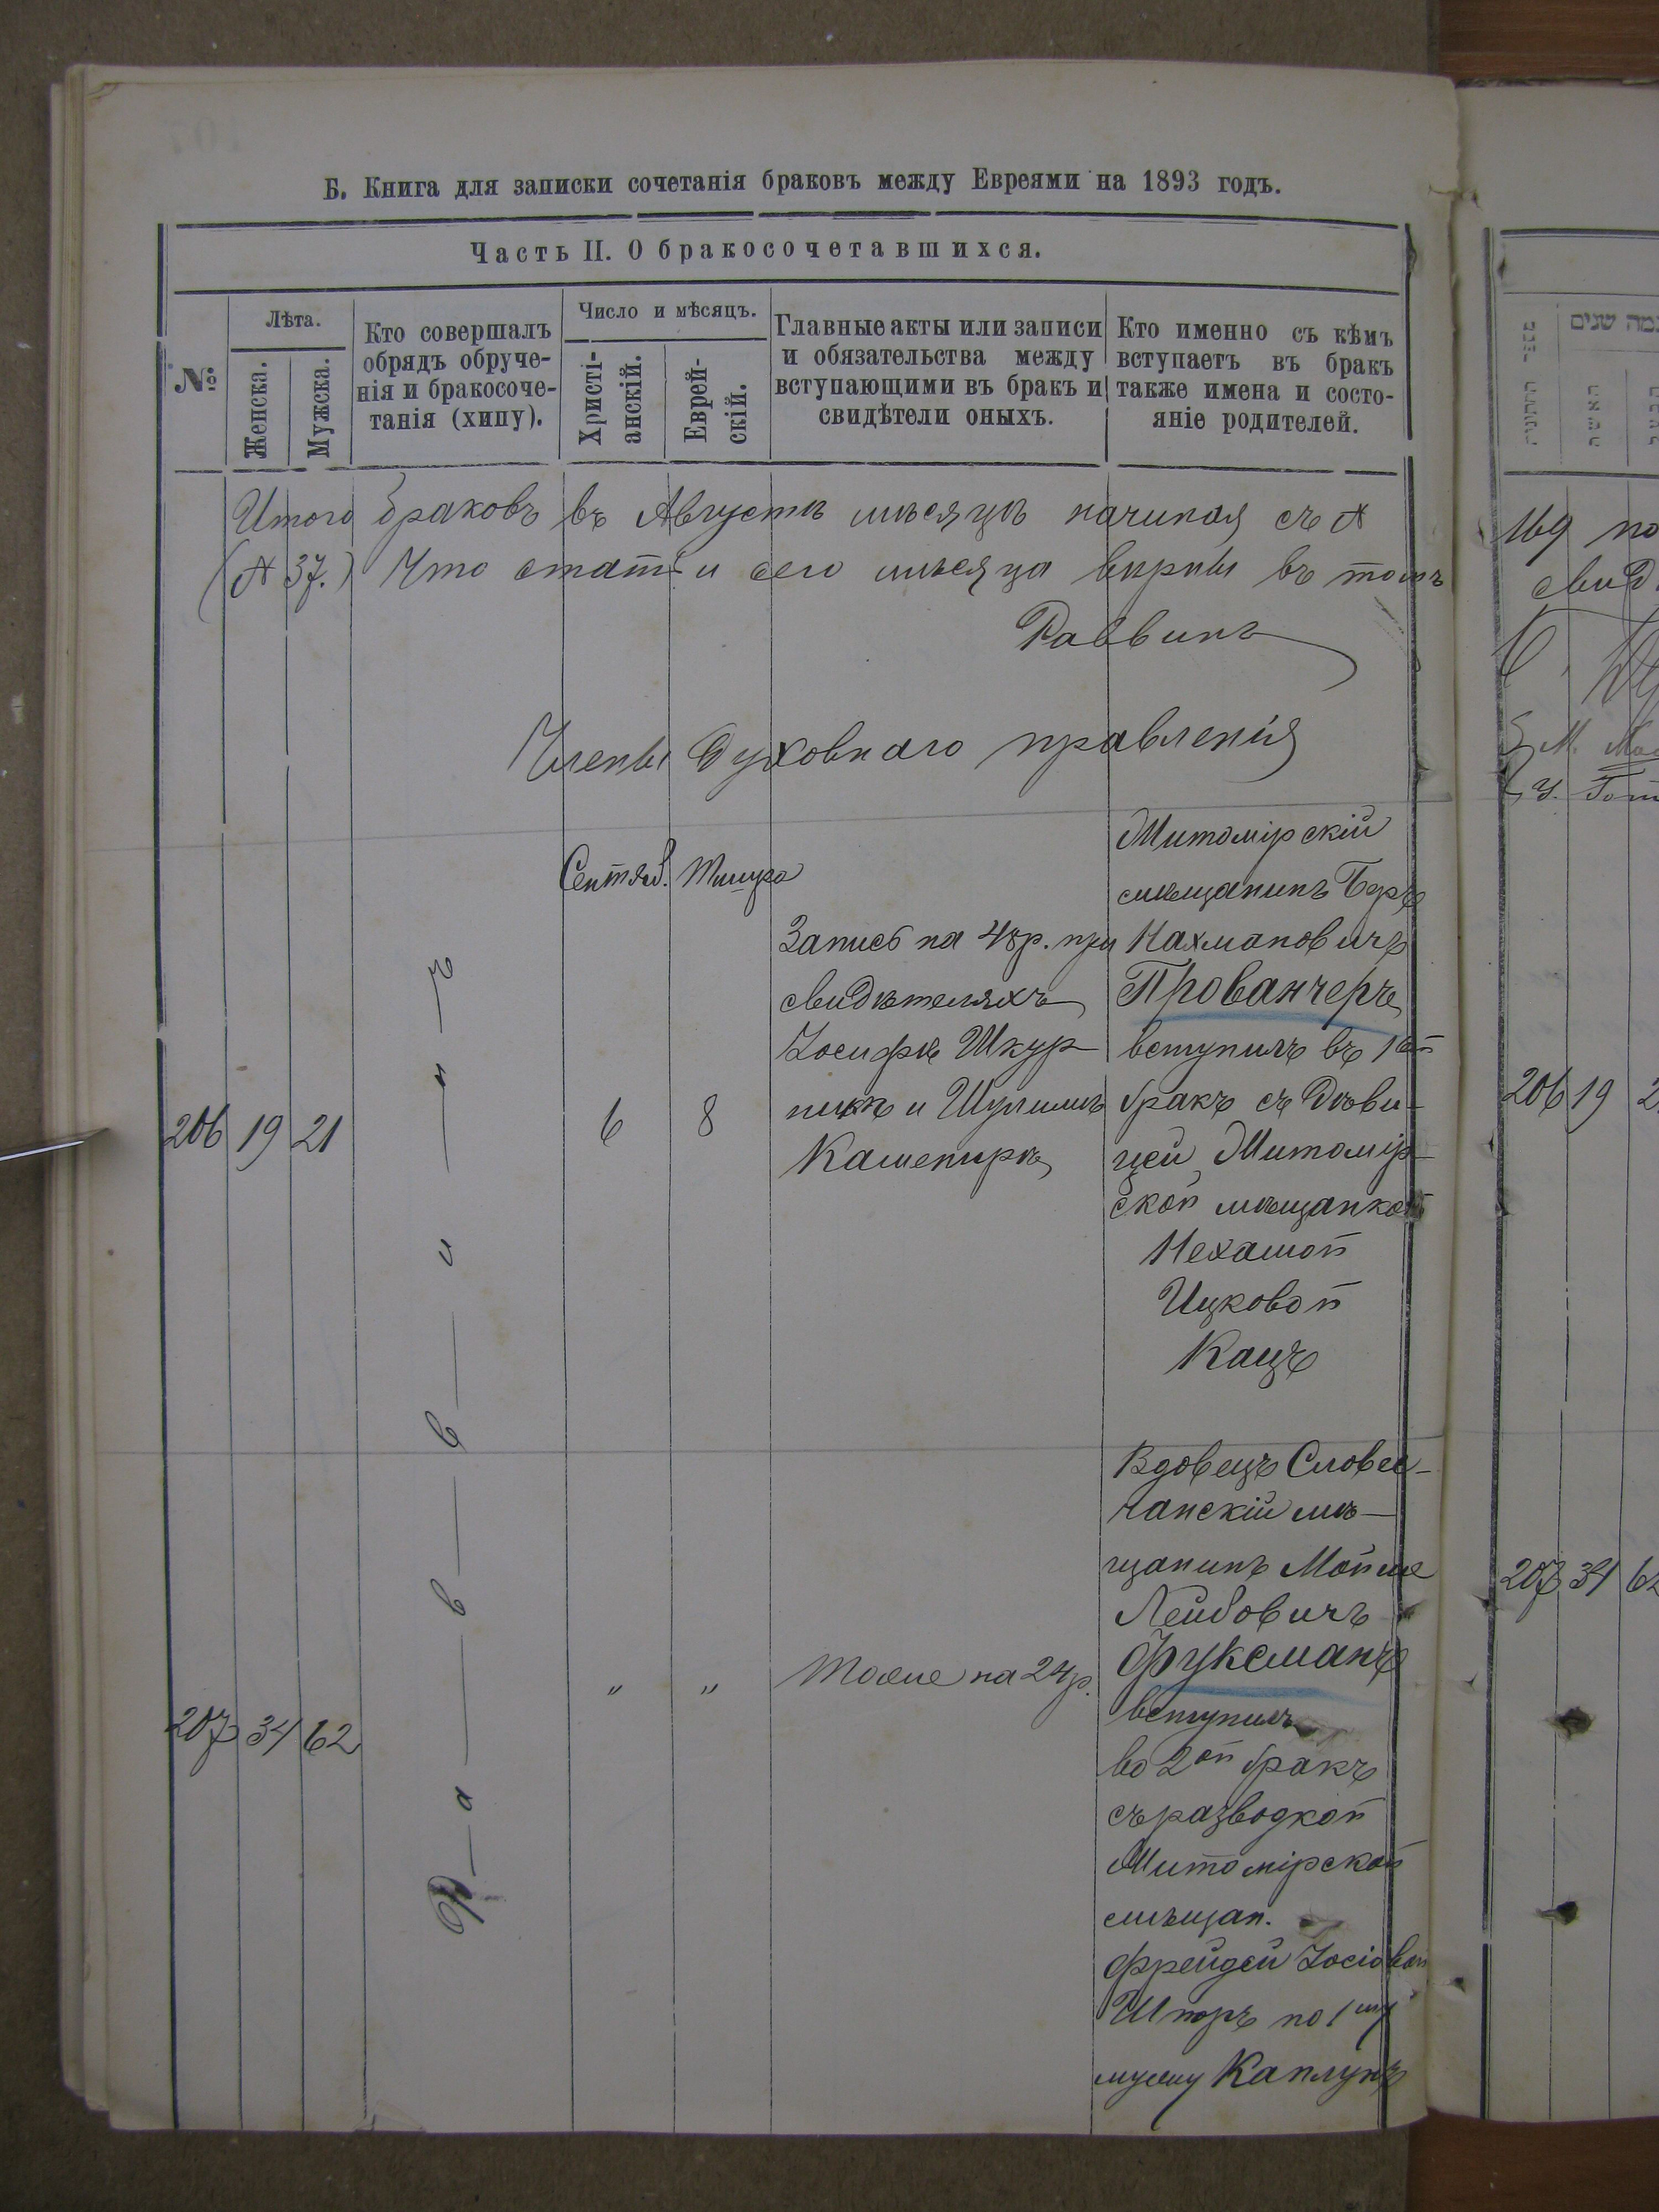 Б. Книга для записки сочетанія браковъ между Евреями на 1893 годъ.
Часть II. О бракосочетавшихся.
№
Лѣта.
Женска.
Мужска.
Кто совершалъ
обрядъ обруче-
нія и бракосоче-
танія (хипу).
Число и мѣсяцъ.
Христі-
анскій.
Еврей-
скій.
Главные акты или записи
и обязательства между
вступающими въ бракъ и
свидѣтели оныхъ.
Кто именно съ кѣмъ
вступаетъ въ бракъ
также имена и состо-
яніе родителей.
Итого браковъ въ Августѣ мѣсяцѣ начиная съ №
(№ 37.) Что статьи сего мѣсяца вѣрны въ томъ
Раввинъ
Члены Духовнаго правленія
Сентяб. Тишра
206 19 21
Р—а—в—в—и—н—ъ
6 8
Запись на 48р. при
свидѣтеляхъ
Іосифѣ Шкур-
никѣ и Шулимѣ
Кашепирѣ
Житомірскій
мѣщанинъ Беръ
Нахмановичъ
Прованчеръ
вступилъ въ 1ой
бракъ съ Дѣви-
цей Житомір-
ской мѣщанкой
Нехамой
Ицковой
Кацъ
207 34 62
" "
Тоже на 24р.
Вдовецъ Словеч-
чанскій мѣ-
щанинъ Мойше
Лейбовичъ
Фуксманъ
вступилъ
во 2ой бракъ
съ разводкой
Житомірской
мѣщан.
Фрейдей Іосіовой
Шпоръ по 1му
мужу Каплунъ
169 по
свид
206 19 2
207 34 62